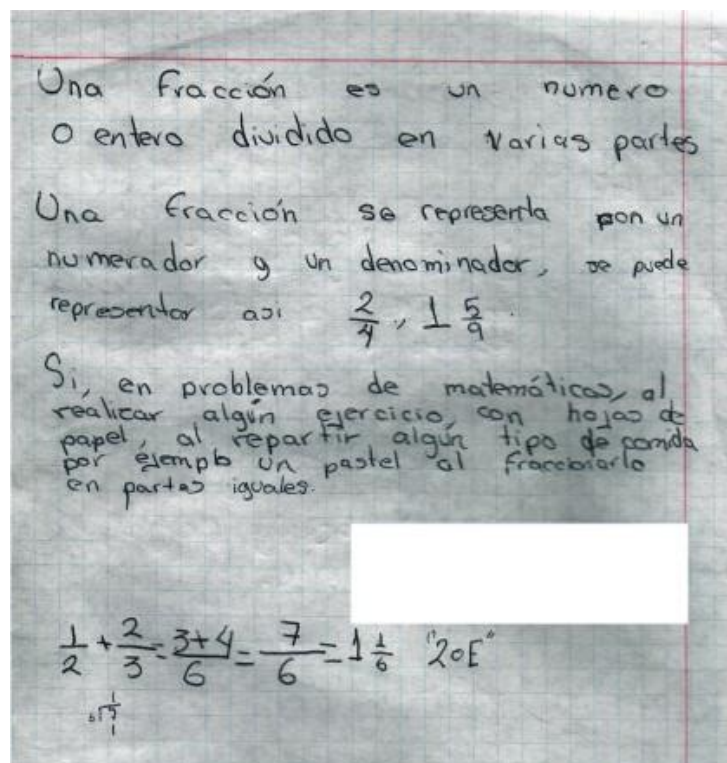 Una fracción es un numero
O entero dividido en varias partes
Una fracción se representa con un
numerador y un denominador, se puede
representar asi 2/4, 1 5/9.
Si, en problemas de matemáticas, al
realizar algún ejercicio, con hojas de
papel, al repartir algún tipo de comida
por ejemplo un pastel al fraccionarlo
en partes iguales.
1/2 + 2/3 = 3+4/6 = 7/6 = 1 1/6 "20E"